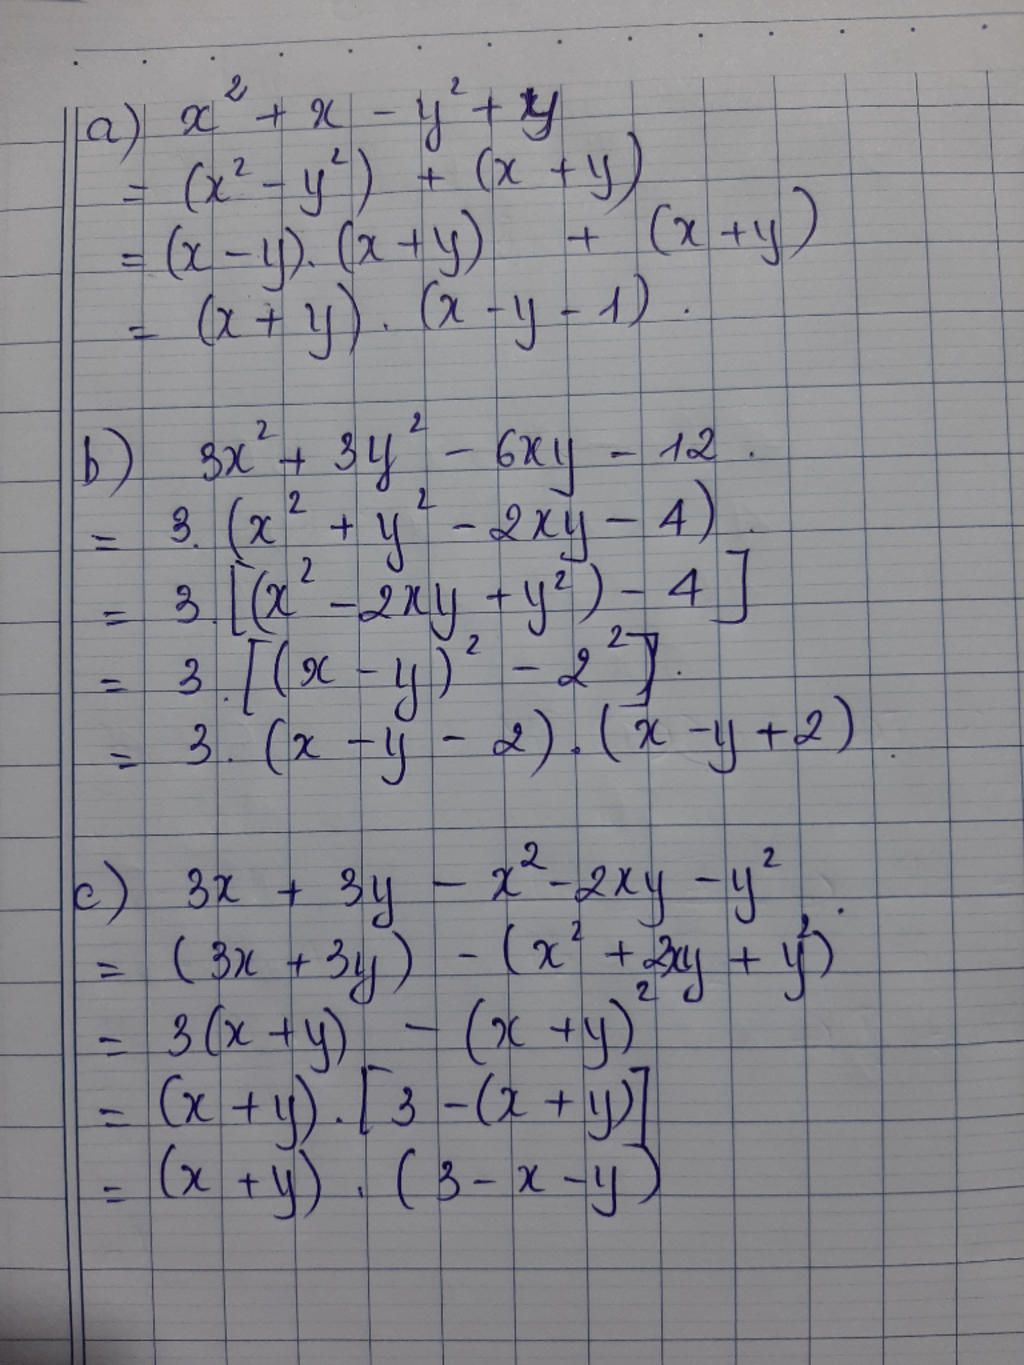 a) x² + x - y² + y
= (x² - y²) + (x + y)
= (x - y). (x + y) + (x + y)
= (x + y) . (x - y - 1) .
b) 3x² + 3y² - 6xy - 12 .
= 3. (x² + y² - 2xy - 4) .
= 3. [(x² - 2xy + y²) - 4]
= 3. [(x - y)² - 2²] .
= 3. (x - y - 2) . (x - y + 2)
c) 3x + 3y - x² - 2xy - y² .
= (3x + 3y) - (x² + 2xy + y²)
= 3(x + y) - (x + y)²
= (x + y) . [3 - (x + y)]
= (x + y) . (3 - x - y)